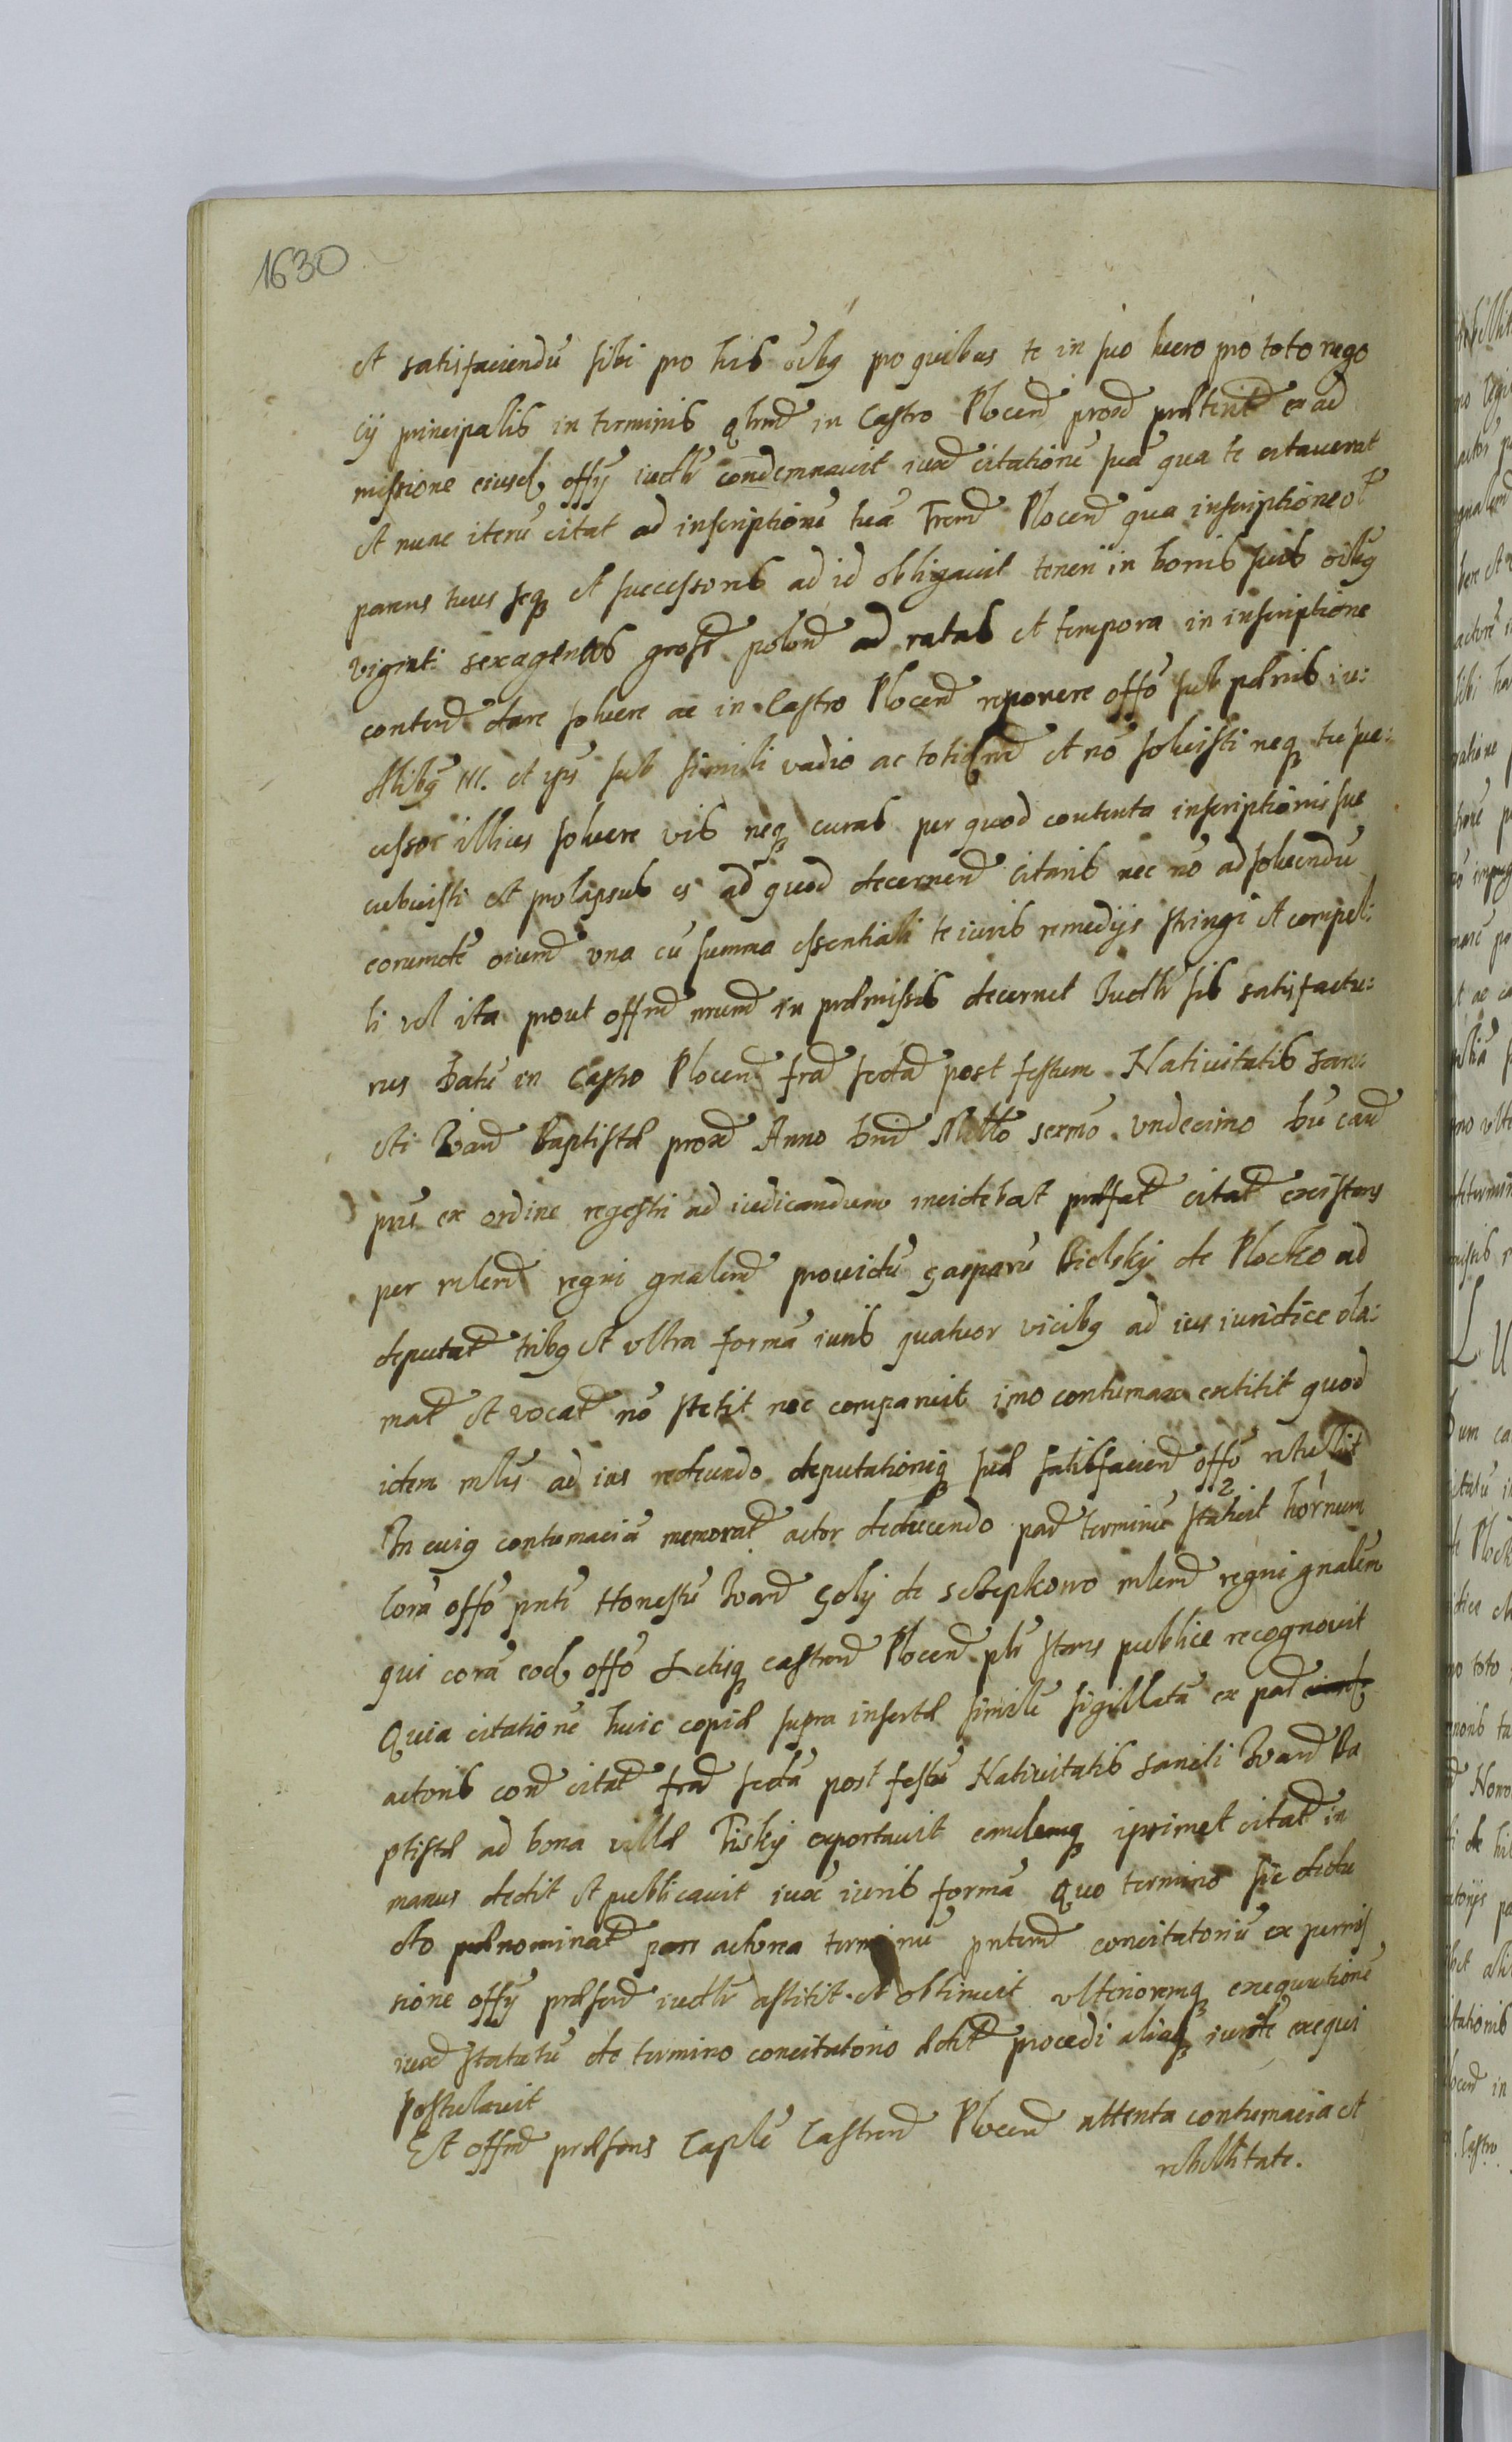 1630
et satisfaciendū sibi pro his oībꝫ pro quibus te in suo lucro pro toto nego
cÿ principalis in terminis in Castro Plocen̄ prox̄ praeterit̄ ex ad
missione eiusd̨ offÿ iudlr condemnauit iux̄ citationē suā qua te citauerat
et nunc iterū citat ad inscriptionē tuā Plocen̄ qua inscriptione ol̄
parens tuus seqꝫ et successores ad id obligauit teneri in bonis suis oībꝫ
viginti sexagenas gross̄ polon̄ ad ratas et tempora in inscriptione
conten̄ dare soluere ac in Castro Plocen̄ reponere offō sub paenis iu:
III. et ip̄is sub simili vadio ac et nō soluisti neqꝫ tu suc:
cessor illius soluere vis neqꝫ curas per quod contenta inscriptionis sue
cubuisti et prolapsus es ad quod decernen̄ citaris nec nō ad soluendū
eorumdē oīum̄ vna cū summa essentiali te iuris remedijs stringi et compel:
li vel ita prout offm̄ nrum̄ in praemissis decernet Iudlr sis satisfactu:
rus Datū in Castro Plocen̄ fr̄a sexta post festum Natiuitatis San:
cti Ioan̄ Baptistae prox̄ Anno Dni Mill̄o sexmō vndecimo Dū cau̅
pn̄s ex ordine regestri ad iudicandum incidebat praefat̄ citat̄ existens
per mlem̄ regni gn̄alem̄ prouidū Gasparū Bielskÿ de Plocko ad
deputat̄ tribꝫ et vltra formā iuris quatuor vicibꝫ ad ius iuridice cla:
mat̄ et vocat̄ nō stetit nec comparuit imo contumax extitit quod
idem mlis ad ius redeundo deputationiqꝫ suae satisfacien̄ offō retulit
In cuiꝫ contumaciā memorat̄ actor deducendo par̄ terminū statuit hōrnum
Corā offō pn̄ti Honestū Ioan̄ Golÿ de Sczepkowo mlem̄ regni gn̄alem
qui corā eod̨ offō Actisqꝫ castren̄ Plocen̄ plr stans publice recognouit
Quia citationē huic copiae supra insertae similē sigillatā ex par̄
actoris con̄ citat̄ fr̄a sexta post festū Natiuitatis sancti Ioan̄ Ba
ptistae ad bona villae Fiskÿ exportauit eandemqꝫ ipsimet citat̄ in
manus dedit et publicauit iux̄ iuris formā Quo termino sic dedu
cto praenominat̄ pars actorea terminū pn̄tem̄ concitatoriū ex permis
sione offÿ praesen̄ iudlr astitit et obtinuit vlterioremqꝫ exequutionē
iux̄ statutū de termino concitatorio aedit̄ procedi aliasqꝫ iurdē exequi
Postulauit
Et offm̄ praesens Capl̄e Castren̄ Plocen̄ attenta contumacia et
rebellitate.